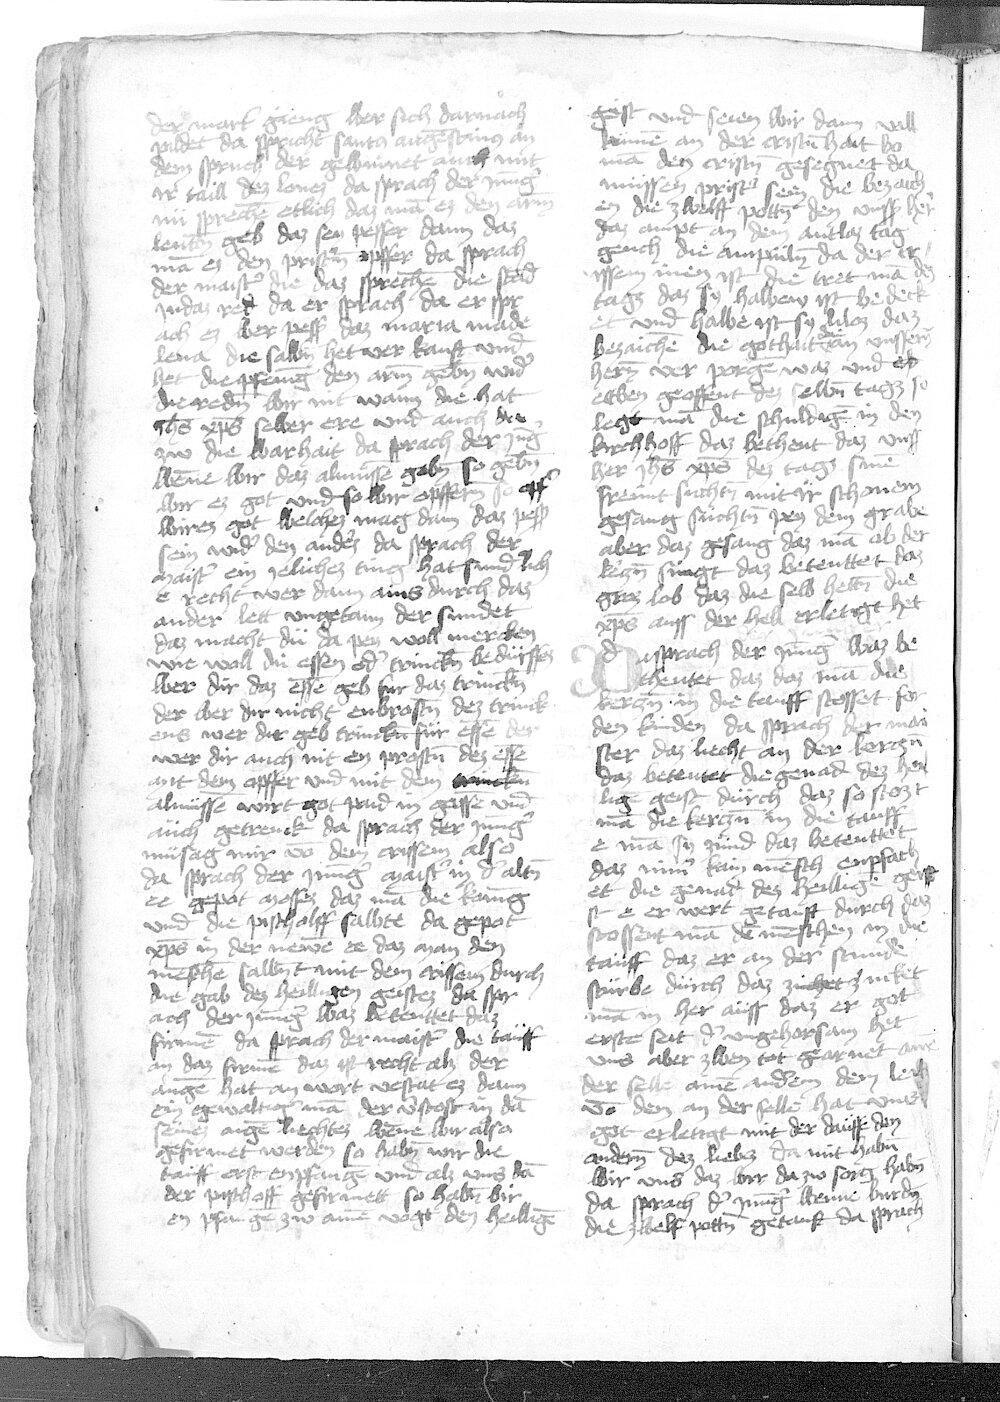 der mark gieng wer sich darnach
pildet da spricht santus augestinus an
dem spruch der gewinnet auch mit
ir taill dez lones da sprach der jung͛
nu sprechē etlich daz mā ez den armē
leutē geb daz sey pesser dann daz
mā ez den pristn̄ opffer da sprach
der maist͛ die daz sprechē die sted
judaz red da er sprach da er spr
ach ez wer pess͛ daz maria made
lena die salbn̄ het ver kauft und
het die pfening den armē gebn̄ und
die redn̄ wir nit wann die hat
ihs xps selber ere und auch
zw die warhait da sprach der jug͛
wēne wir daz almüsse gebn̄ so gebn̄
wir ez got und so wir opffern̄ so opf
wirez got welchez mag dann daz pess͛
sein wid͛ den anders da sprach der
maist͛ ein jeliches ting hat sund͛lich
e recht wer dann ains durch daz
ander lett ungetann der sundet
daz macht dü da pey woll mercken
wie woll du essen od͛ trinckn̄ bedürffes
wer dir daz esse geb für daz trinckn̄
der wer dir nicht enbrostn̄ dez trinck
ens wer dir geb trinckn̄ für esse der
wer dir auch nit en prostn̄ dez esse
mit dem opffer und mit dem
almüsse wirt got paid in gespe und
auch getrenck da sprach der jung͛
nu sag mir vō dem crissem also
da sprach der jung͛ maist͛ in d͛ altn̄
ee gepot moyses daz mā die kōnig
und die pischolff salbte da gepot
xps in der newe ee daz man den
menschē salbn̄t mit dem crissem durch
die gab dez heilligen geistez da spr
ach der jung͛ waz betenttet daz
firmē da sprach der maist͛ die tauff
an daz firmē daz ist recht als der
ange hat an wort vestat ez dann
ein gewaltig͛ mā der v͛stost in dā
seines auge liechtes wēne wir also
gefirmet werden so habn̄ wir die
tauff erst enpfangē und als uns dā
der pischoff gefirmett so habn̄ wir
en pfangē zw aine vogt den heilligē
geist und seien wir dann voll
kumē an der cristn̄hait wo
mā den cristn̄ gesegnet da
müssen prist͛ sein die bezaich
en die zwelff pottn̄ den unss her
daz ampt an dem antlaz tag
gench die ampulln̄ da der cr
issem inen ist die tret mā dez
tags daz sy halbew ist bedeck
et und halbe ist sy ploz daz
bezaichē die gothait an unssern̄
hern̄ ver porgē waz und
etben geoffent dez selbn̄ tags so
legt mā die schuldigē in den
kirchhoff daz bethent daz unss
her ihs xps dez tags sine
freūnt suchtn̄ mit ir schonem
gesang suchtn̄ pey dem grabe
aber daz gesang daz mā ob der
kerzn̄ singt daz betenttet daz
gros lob daz die selb heltn̄ die
xps auss der hell erletigt het
Da sprach der jung͛ waz be
theutet daz daz mā die
kerczn̄ in die tauff stosset for
den kinden da sprach der mai
ster daz liecht an der kerczn̄
daz betentet die genad dez hei
ligē geist durch daz so stozt
mā die kerczn̄ in die tauff
e mā sy zünd daz betenttet
daz nim͛ kain mēsch enpfach
et die genad dez heilligē geiss
st e er wert getauft durch daz
stossent mā dē menschen in die
tauff daz er an der stunde
sturbe durch daz zucket
mā in her auss daz er got
erste seit d͛ ungehorsam het
uns aber zwen tot gearnet
der selle ainē andern dem leib
vō dem an der selle hat uns
got erletigt mit der tauffe den
andern̄ dez liebez da mit habn̄
wir uns daz wir dazw sorg habn̄
da sprach d͛ jung͛ wenne wurdn̄
die zwelf pottn̄ getauft da sprach